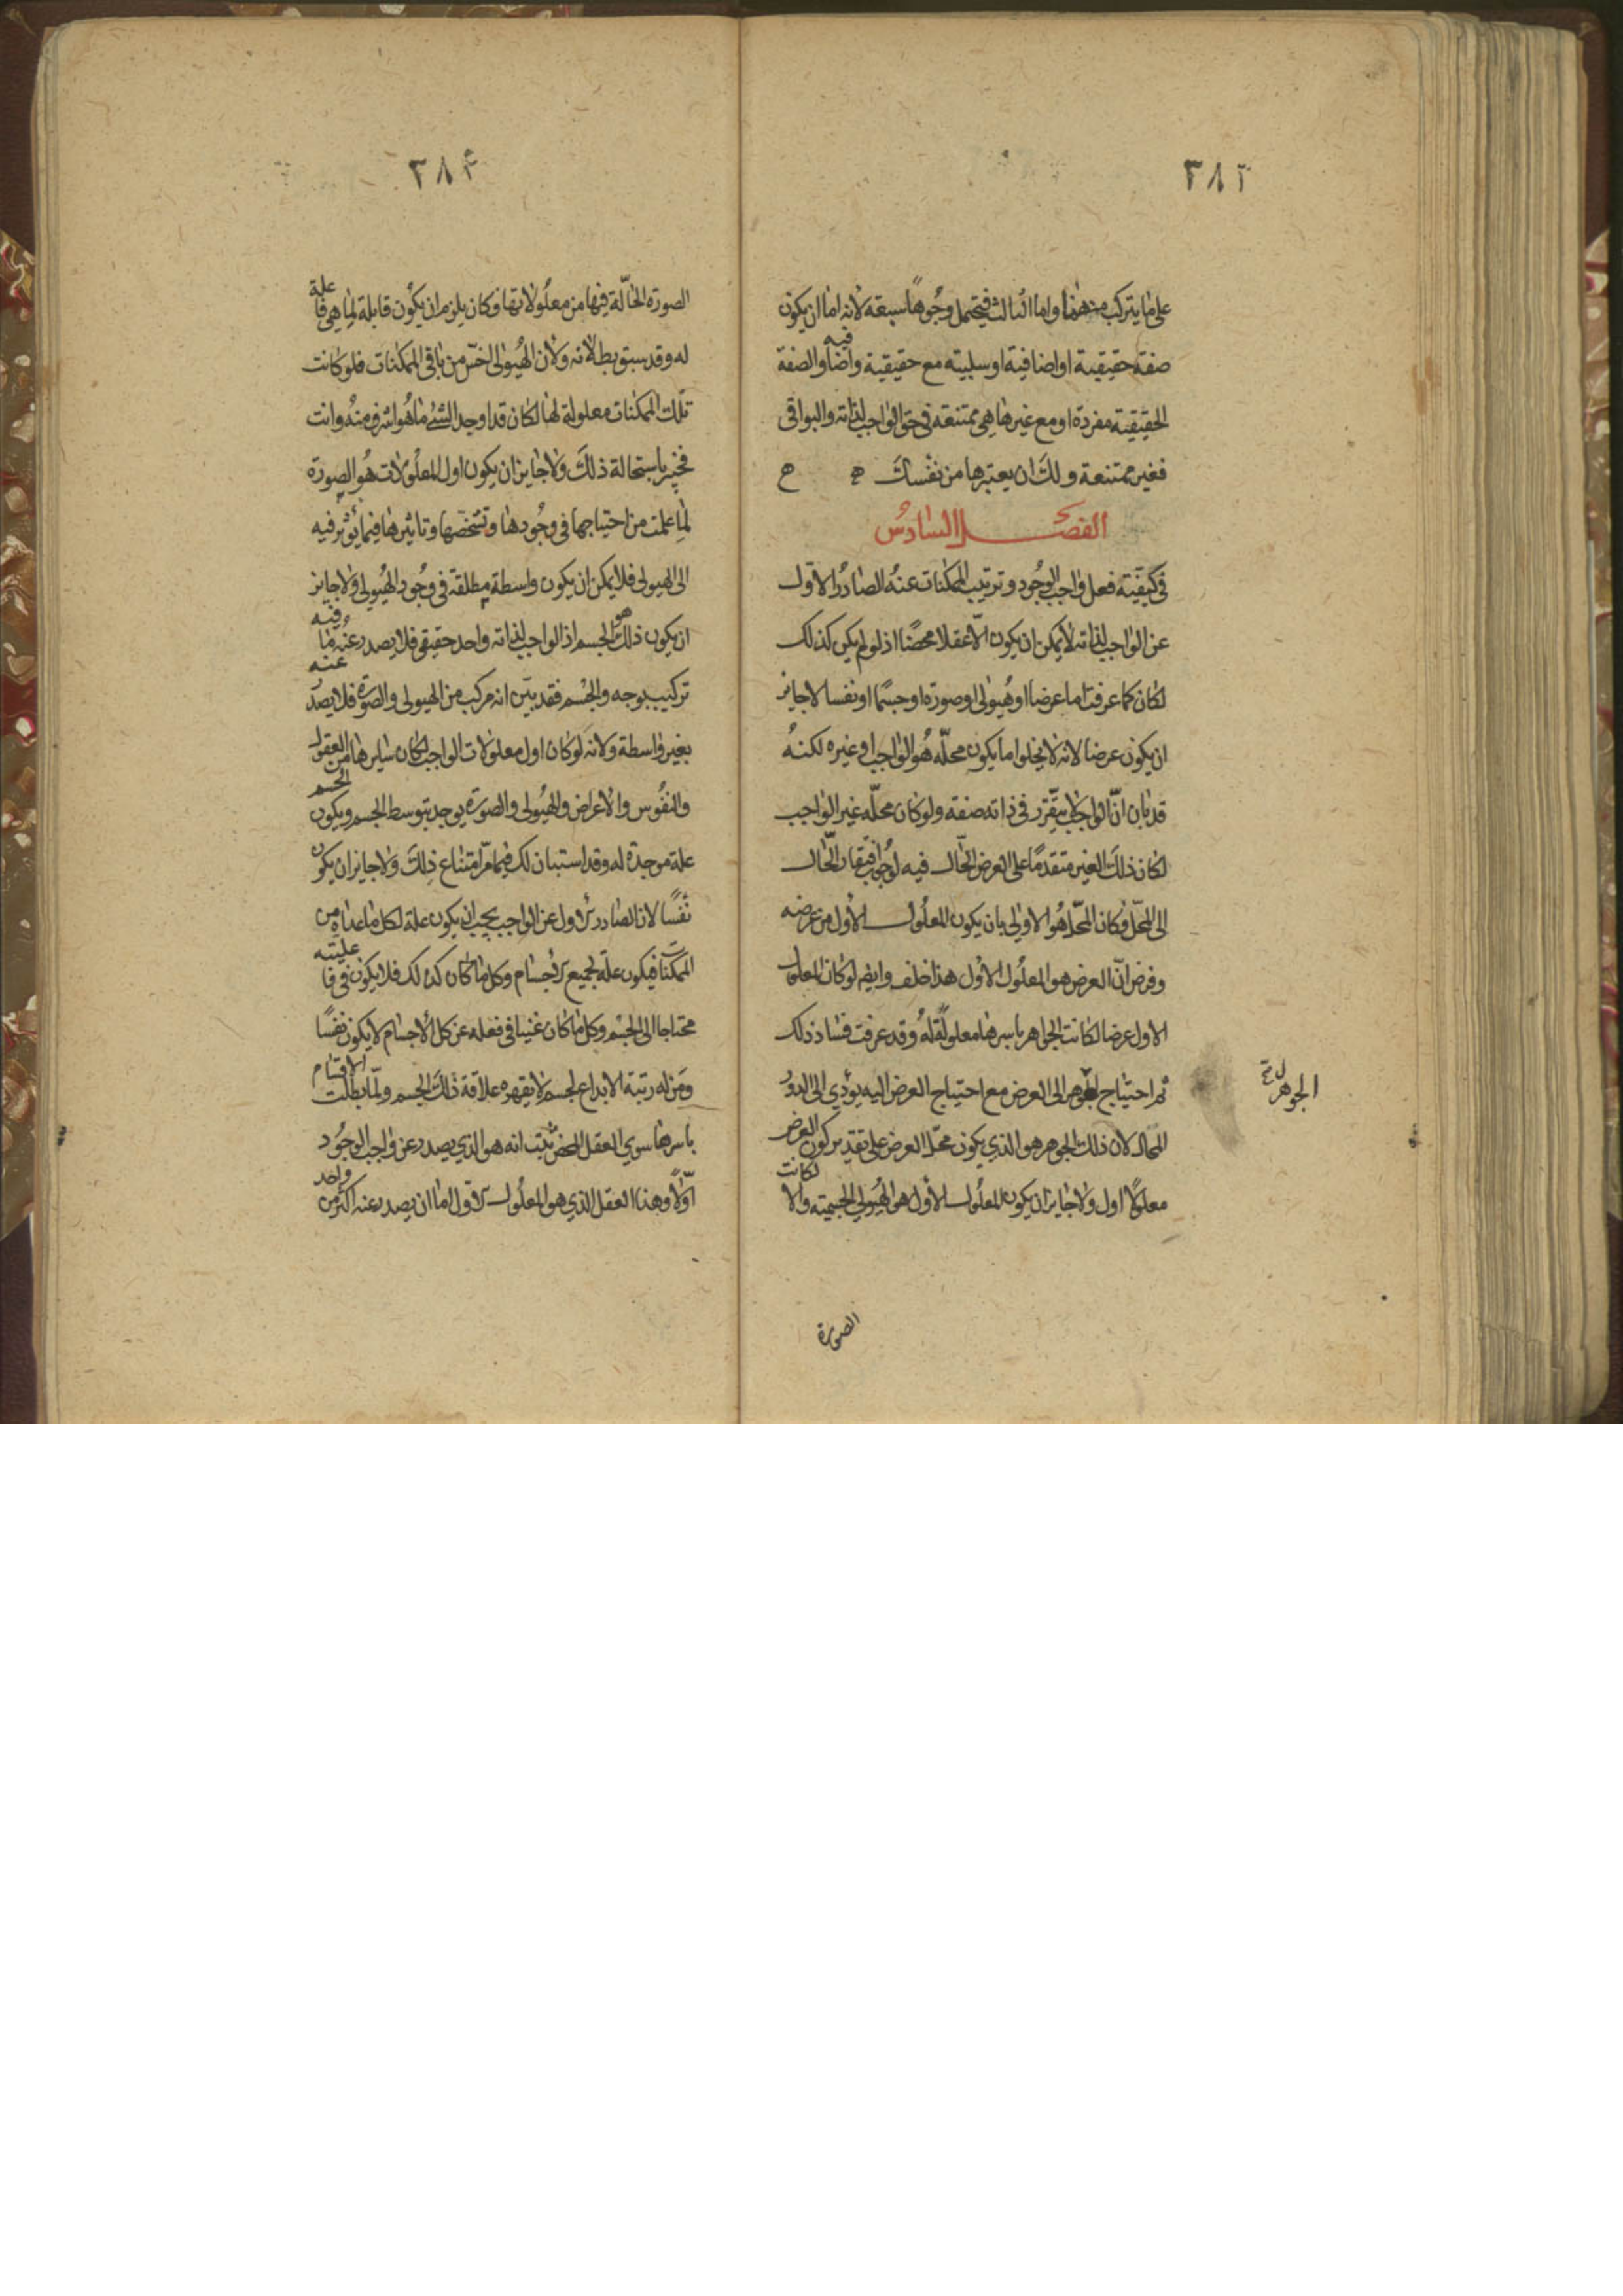 ٣٨٣
على ما يتركب منهما واما الثالث فيحتمل وجوها سبعة لانه اما ان يكون
صفة حقيقية او اضافية او سلبية مع حقيقية واضا فيه والصفة
الحقيقية مفردة او مع غيرها هي ممتنعة في حق الواجب لذاته والبواقي
فغير ممتنعة ولك ان يعتبرها من نفسك
الفصل السادس
في كيفية فعل واجب الوجود وترتيب الممكنات عنه الصادر الاول
عن الواجب لذاته لا يمكن ان يكون الا عقلا محضا اذ لو لم يكن كذلك
لكان كما عرفت اما عرضا او هيولى او صورة او جسما او نفسا لا جايز
ان يكون عرضا لانه لا يخلوا اما يكون محله هو الواجب او غيره لكنه
قد بان ان الواجب لا يتقرر في ذاته صفة ولو كان محله غير الواجب
لكان ذلك الغير متقدما على العرض الحال فيه لوجوب افتقار الحال
الى المحل وكان المحل هو الاولى بان يكون المعلول الاول من عرضه
وفرض ان العرض هو المعلول الاول هذا خلف وايضا لو كان المعلول
الاول عرضا لكانت الجواهر باسرها معلولة له وقد عرفت فساد ذلك
ثم احتياج الجوهر الى العرض مع احتياج العرض اليه يؤدي الى الدور
الجوهر
المحال لان ذلك الجوهر هو الذي يكون محل العرض على تقدير كون العرض
معلولا اول ولا جايز ان يكون المعلول الاول هو الهيولى الجسمية والا لكانت
الصورة
٣٨٤
الصورة الحالة فيها من معلولاتها وكان يلزم ان يكون قابلة لما هي فا علة
له وقد سبق بطلانه ولان الهيولى اخس من باقي الممكنات فلو كانت
تلك الممكنات معلولة لها لكان قد اوجد الشئ ما هو اشرف منه وانت
خبير باستحالة ذلك ولا جايز ان يكون اول المعلولات هو الصورة
لما علمت من احتياجها في وجودها وتشخصها وتاثيرها فيما يؤثر فيه
الى الهيولى فلا يمكن ان يكون واسطة مطلقة في وجود الهيولى ولا جايز
ان يكون ذلك هو الجسم اذ الواجب لذاته واحد حقيقي فلا يصدر عنه ما فيه
تركيب بوجه والجسم فقد بين انه مركب من الهيولى والصورة فلا يصدر عنه
بغير واسطة ولانه لو كان اول معلولات الواجب لكان سايرها من العقول
والنفوس والاعراض والهيولى والصورة يوجد بتوسط الجسم ويكون الجسم
علة موجدة له وقد استبان لك فيما مر امتناع ذلك ولا جايز ان يكون
نفسا لان الصادر الاول عن الواجب يجب ان يكون علة لكل ما عداه من
الممكنات فيكون علة لجميع الاجسام وكل ما كان كذلك فلا يكون في فا عليته
محتاجا الى الجسم وكل ما كان غنيا في فعله عن كل الاجسام لا يكون نفسا
ومن له رتبة الابداع لجسم لا يقهره علاقة ذلك الجسم ولما بطلت الاقسام
باسرها سوى العقل المحض ثبت انه هو الذي يصدر عن واجب الوجود
اولا وهذا العقل الذي هو المعلول الاول اما ان يصدر عنه اكثر من واحد